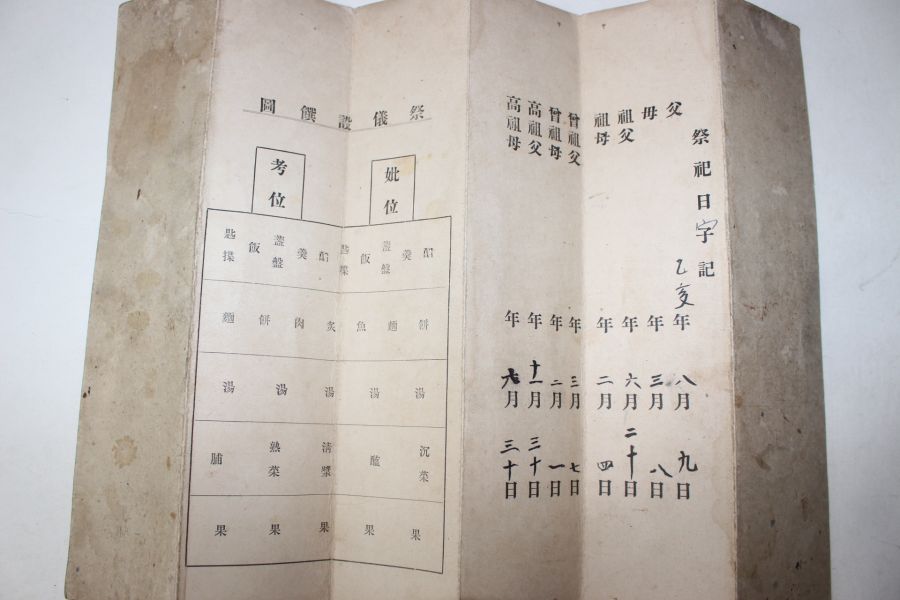 祭祀日字記
父 乙亥年八月九日
母 年三月八日
祖父 年六月二十日
祖母 年二月四日
曾祖父 年三月七日
曾祖母 年二月一日
高祖父 年十一月三十日
高祖母 年六月三十日
祭儀設饌圖
妣位
考位
匙楪 飯 盞盤 羹 醋 匙楪 飯 盞盤 羹 醋
麵 餠 肉 炙 魚 麵 餠
湯 湯 湯 湯 湯
脯 熟菜 清醬 醢 沉菜
果 果 果 果 果